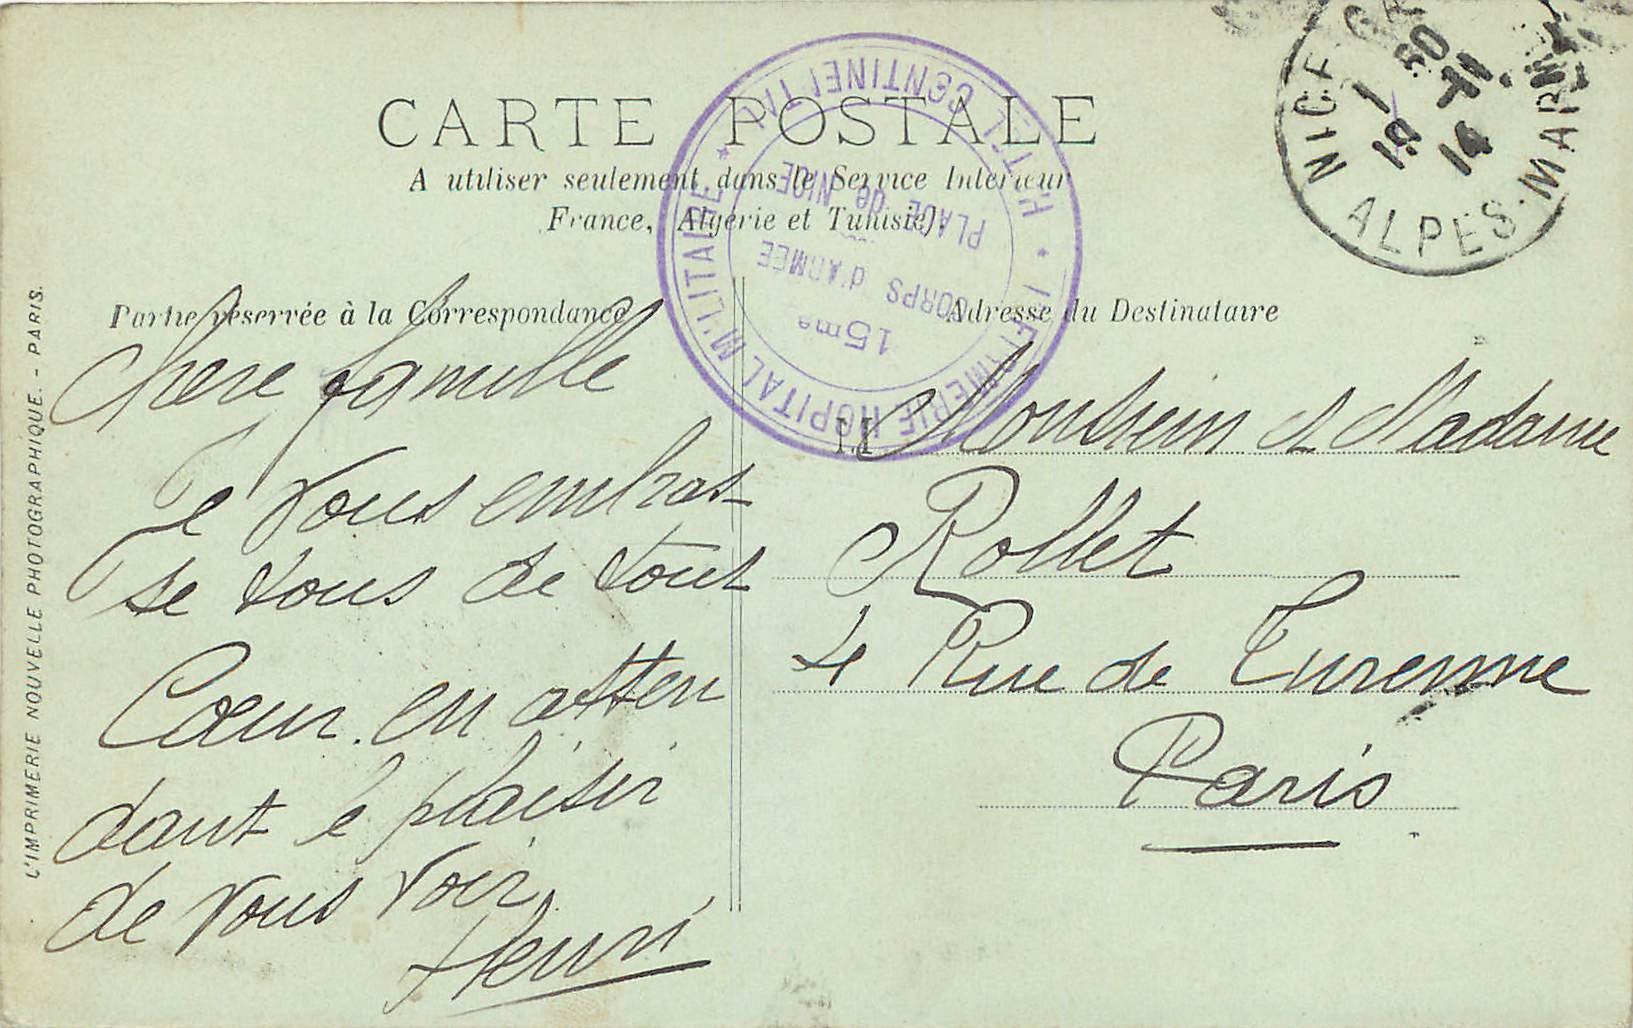 CARTE POSTALE
A utiliser seulement dans le Service Intérieur
France, Algérie et Tunisie).
Partie réservée à la Correspondance
Adresse du Destinataire
Chere famille
Je vous embras-
se tous de tout
Cœur. en atten
dant le plaisir
de vous voir
Henri
M
Monsieur et Madame
Rollet
4 Rue de Turenne
Paris
L'IMPRIMERIE NOUVELLE PHOTOGRAPHIQUE. - PARIS.
HOPITAL MILITAIRE * HTEL CONTINENTAL * INFIRMERIE
15me
CORPS d'ARMEE
PLACE de NICE
NICE
ALPES-MAR
1 50
19 -11
14